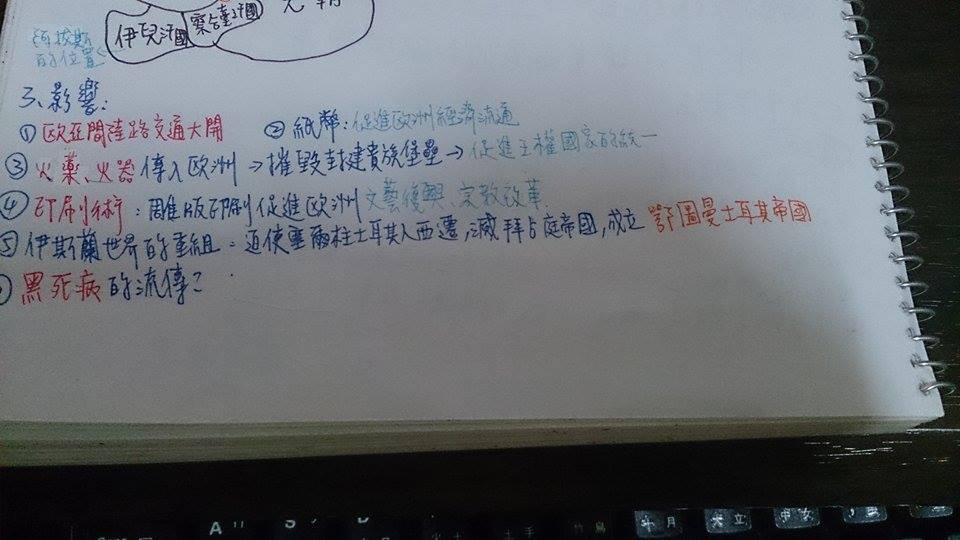 伊兒汗國 察合台汗國
的位置
3、影響:
① 歐亞間陸路交通大開 ② 紙幣:促進歐洲經濟流通
③ 火藥、火器傳入歐洲→摧毀封建貴族堡壘→促進王權國家的統一
④ 印刷術:雕版印刷促進歐洲文藝復興、宗教改革
⑤ 伊斯蘭世界的重組:迫使塞爾柱土耳其人西遷,滅拜占庭帝國,成立 鄂圖曼土耳其帝國
黑死病的流傳?
A S D